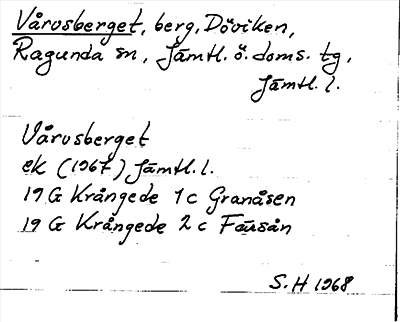 Vårvsberget, berg, Döviken,
Ragunda sn, Jämtl. ö. doms. tg,
Jämtl. l.
Vårvsberget
ek (1967) Jämtl. l.
19 G Krångede 1 c Granåsen
19 G Krångede 2 c Fäusån
S. H 1968